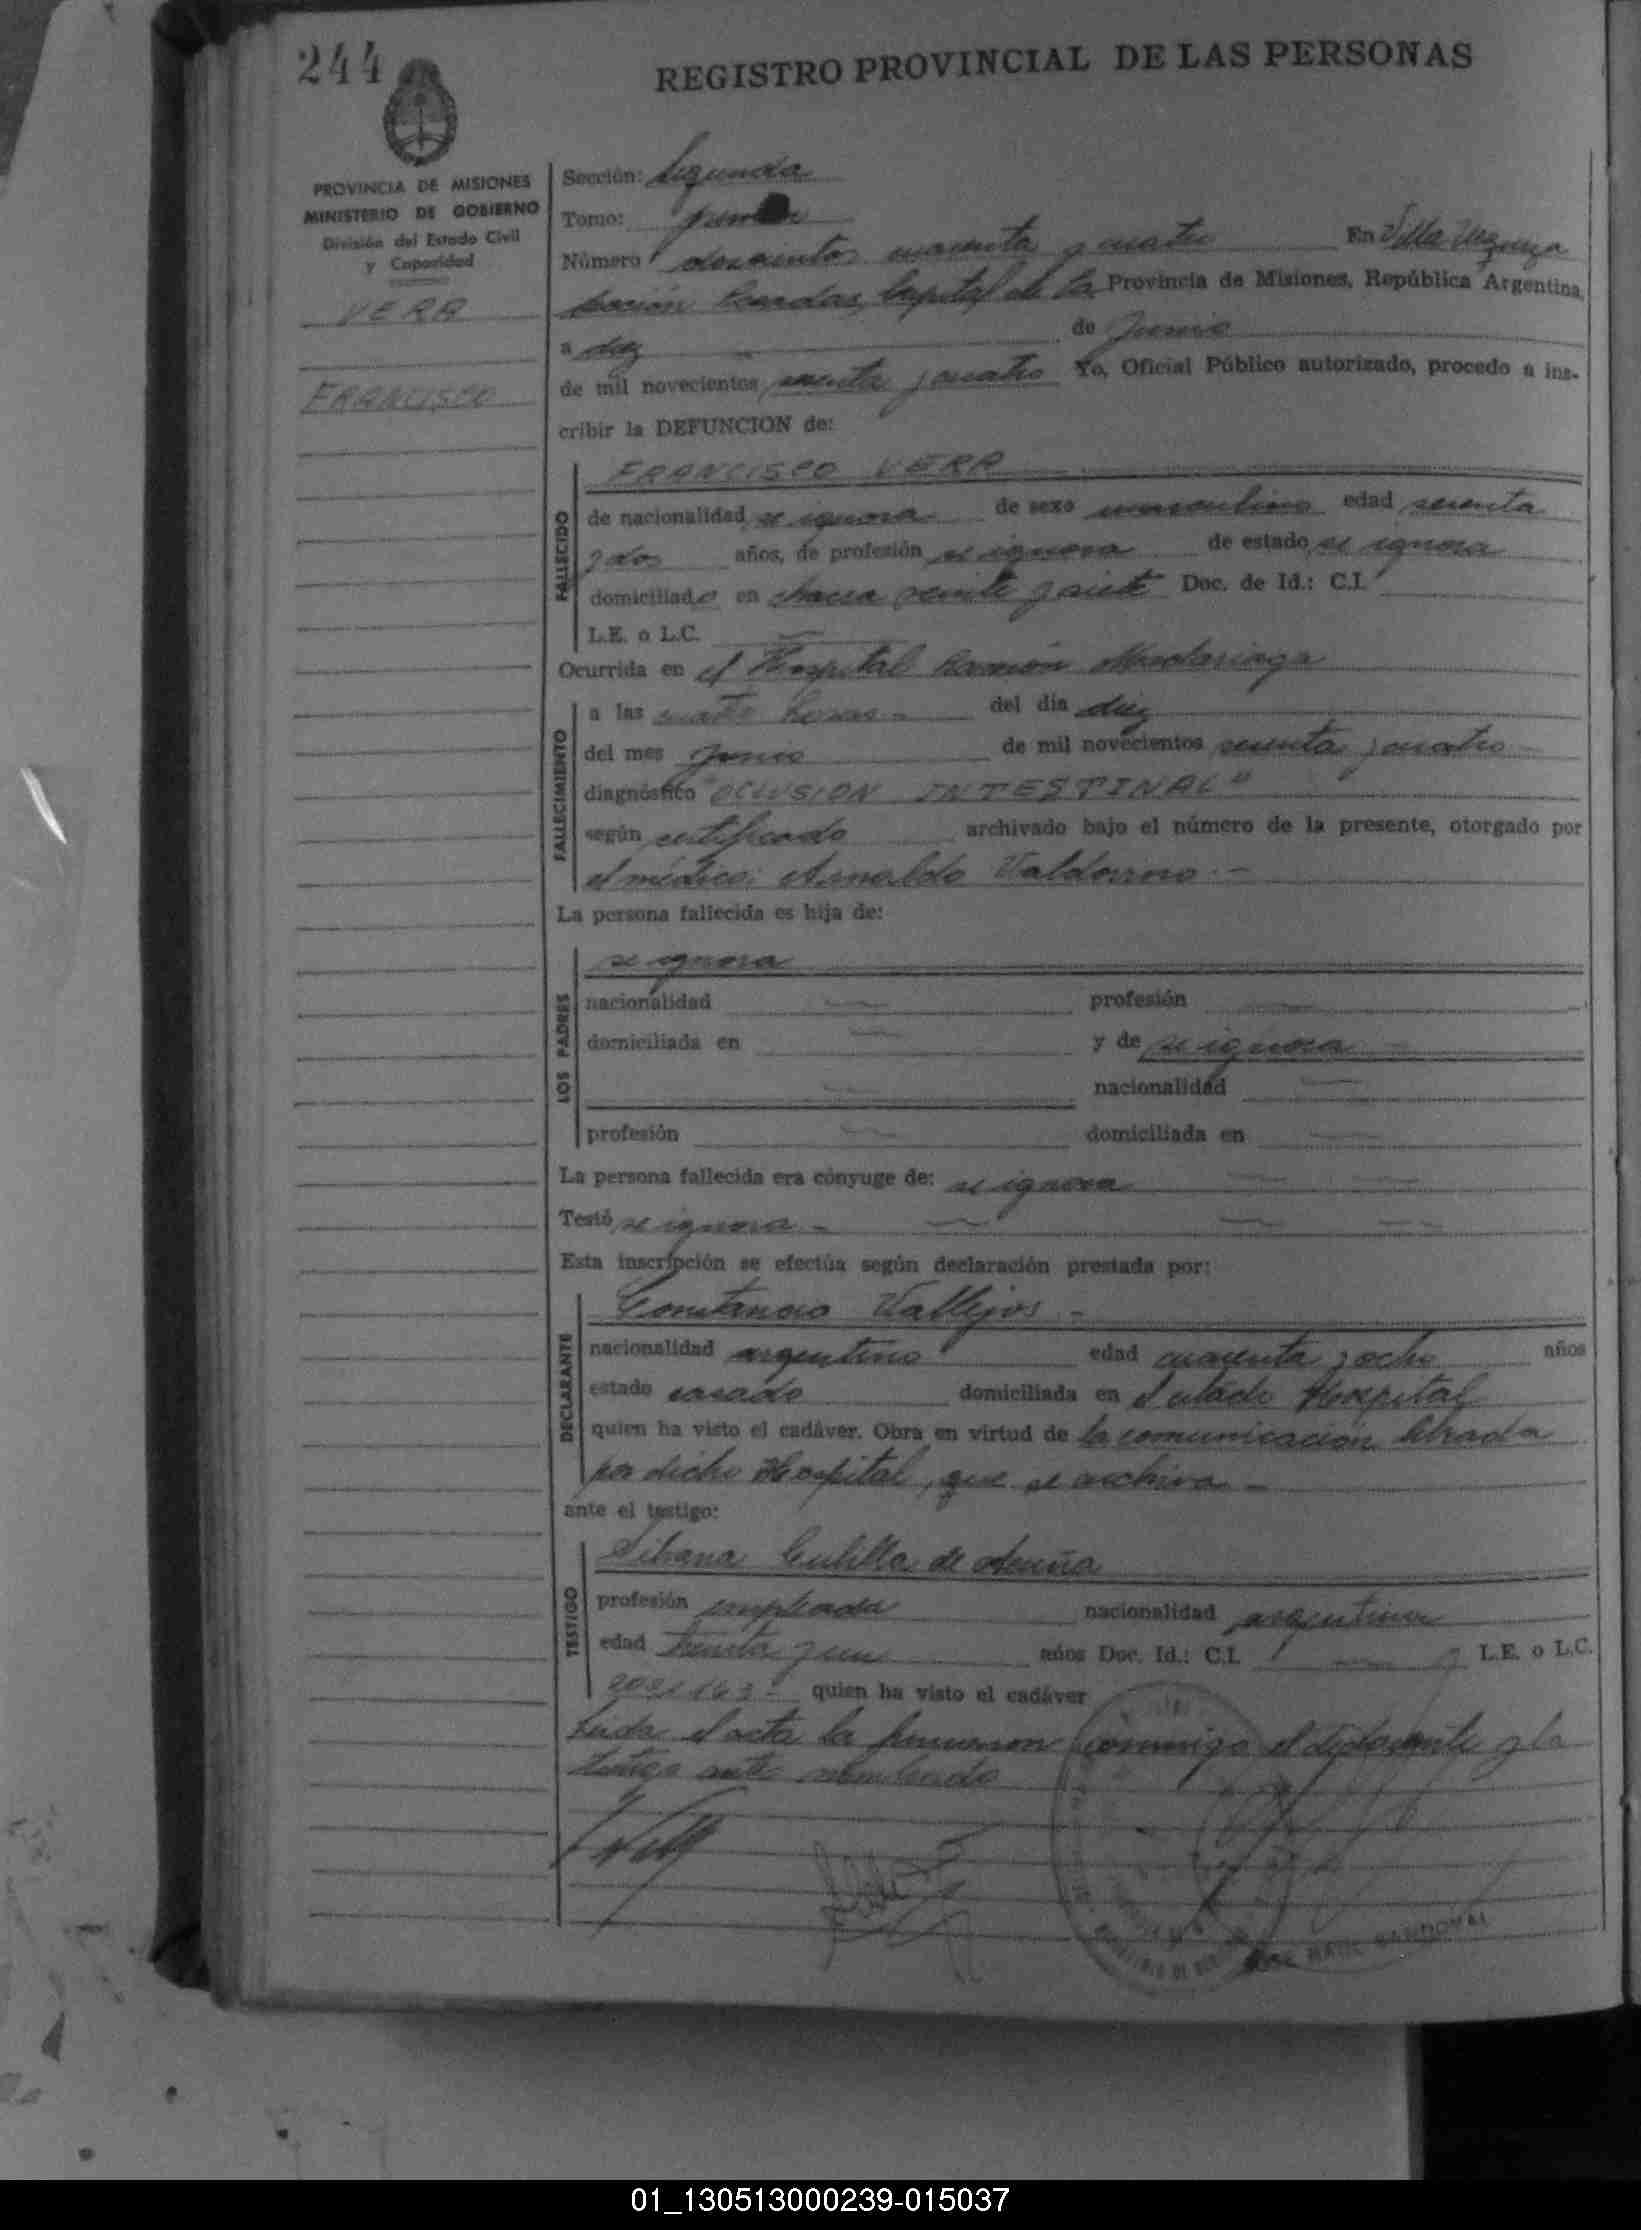 244
REGISTRO PROVINCIAL DE LAS PERSONAS
PROVINCIA DE MISIONES
MINISTERIO DE GOBIERNO
División del Estado Civil
y Capacidad
VERA
FRANCISCO
Sección: Segunda
Tomo:
Número doscientos cuarenta y cuatro En Villa Urquiza
Sección Posadas, Capital de la Provincia de Misiones, República Argentina,
a diez de Junio
de mil novecientos setenta y cuatro Yo, Oficial Público autorizado, procedo a ins-
cribir la DEFUNCION de:
FALLECIDO
FRANCISCO VERA
de nacionalidad se ignora de sexo masculino edad setenta
y dos años, de profesión se ignora de estado se ignora
domiciliado en chacra veinte y siete Doc. de Id.: C.I.
L.E. o L.C.
Ocurrida en el Hospital Ramón Madariaga
FALLECIMIENTO
a las cuatro horas.- del día diez
del mes Junio de mil novecientos setenta y cuatro
diagnóstico "OCLUSION INTESTINAL"
según certificado archivado bajo el número de la presente, otorgado por
el médico: Arnaldo Valdovino.-
La persona fallecida es hija de:
LOS PADRES
se ignora
nacionalidad profesión
domiciliada en y de se ignora
nacionalidad
profesión domiciliada en
La persona fallecida era cónyuge de: se ignora
Testó se ignora.-
Esta inscripción se efectúa según declaración prestada por:
DECLARANTE
Constancio Vallejos.-
nacionalidad argentino edad cuarenta y ocho años
estado casado domiciliada en el citado Hospital
quien ha visto el cadáver. Obra en virtud de la comunicación librada
por dicho Hospital, que se archiva.-
ante el testigo:
TESTIGO
de Acuña
profesión empleada nacionalidad argentina
edad treinta y un años Doc. Id.: C.I. L.E. o L.C.
quien ha visto el cadáver
Leida el acta la firmaron conmigo el declarante y la
testigo ante nombrado
RAUL SANDOVAL
01_130513000239-015037